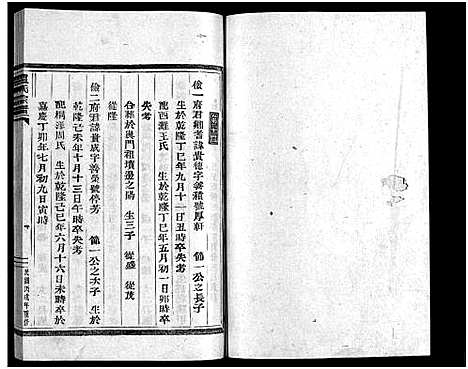 儉一府君鄉耆諱貴德字善積號厚軒　節一公之長子
生於乾隆丁巳年九月十一日丑時卒於
失考
配西灘王氏　生於乾隆丁巳年五月初一日卯時卒
合葬於良門祖墳邊之陽　生三子　從盛　從茂
從隆
儉二府君諱貴成字善榮號停芳　節一公之次子　生於
乾隆己未年十月十三日午時卒失考
配桐洋周氏　生於乾隆己巳年六月十六日未時卒於
嘉慶丁卯年七月初九日寅時